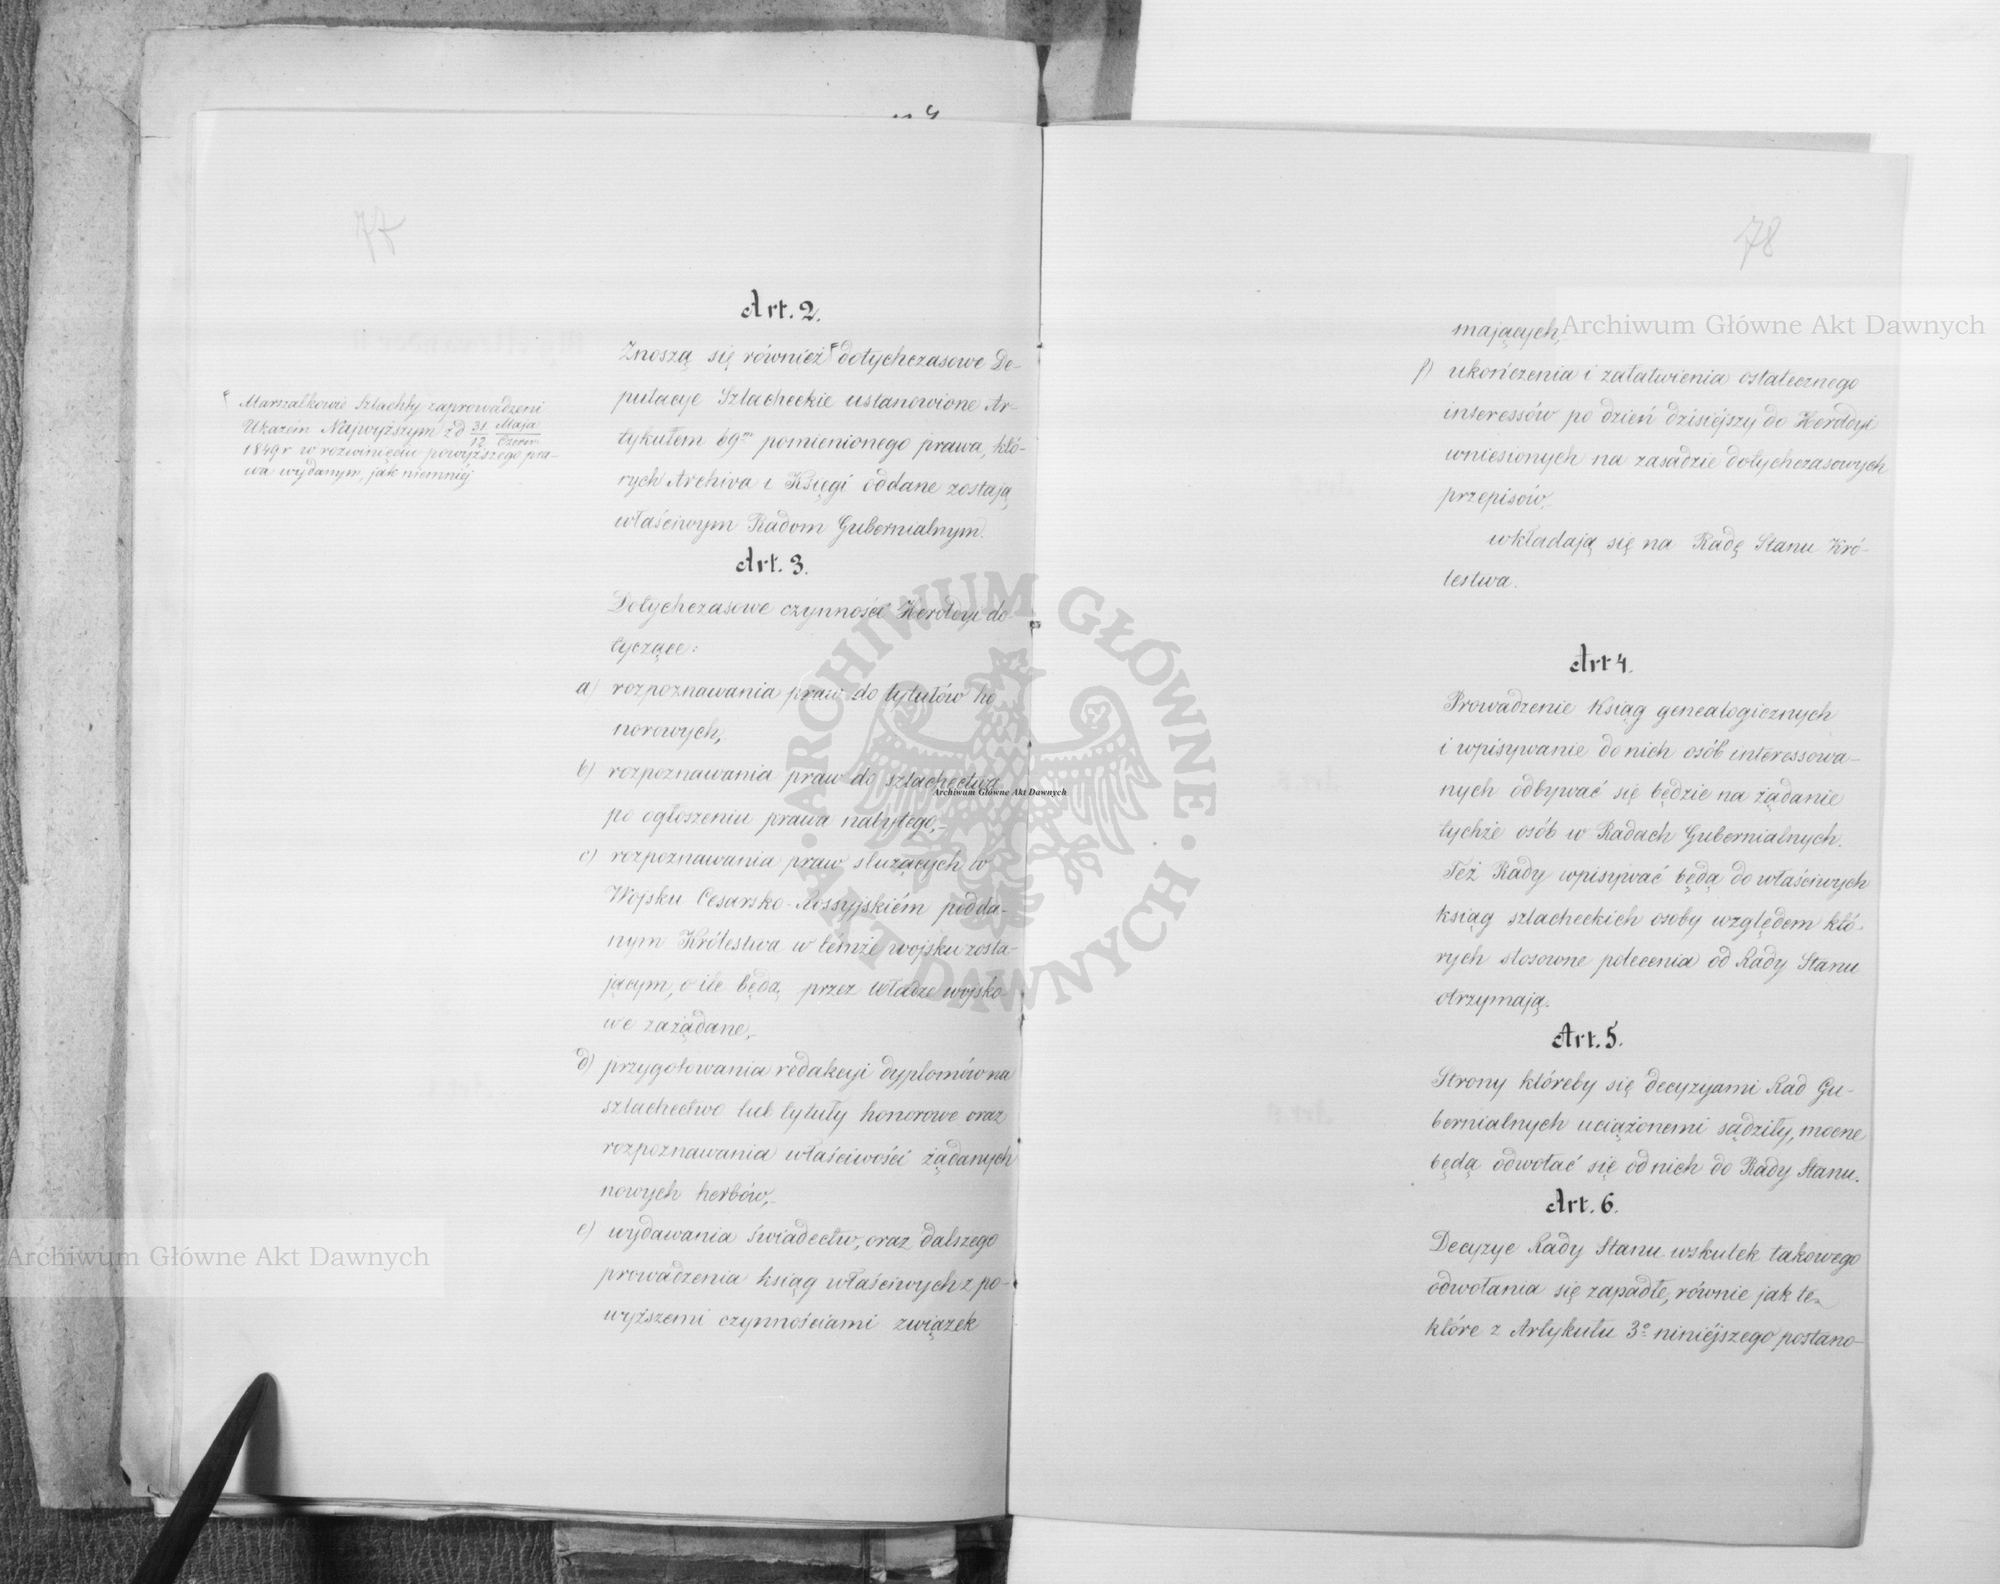 77
Art. 2.
Znoszą się również dotychczasowe De-
putacye Szlacheckie ustanowione Ar-
tykułem 69ᵐ pomienionego prawa, któ-
rych Archiva i Księgi oddane zostają
właściwym Radom Gubernialnym.
Marszałkowie Szlachty zaprowadzeni
Ukazem Najwyższym z d 31/12 Maja/Czerw.
1849 r w rozwinięciu powyższego pra-
wa wydanym, jak niemniéj
Art. 3.
Dotychczasowe czynności Heroldyi do-
tyczące:
a) rozpoznawania praw do tytułów ho
norowych,
b) rozpoznawania praw do szlachectwa
po ogłoszeniu prawa nabytego,-
c) rozpoznawania praw służących w
Wojsku Cesarsko-Rossyjskiém podda-
nym Królestwa w témże wojsku zosta-
jącym, o ile będą przez Władze wojsko-
we zażądane,-
d) przygotowania redakcyi dyplomów na
szlachectwo lub tytuły honorowe oraz
rozpoznawania właściwości żądanych
nowych herbów,-
e) wydawania świadectw, oraz dalszego
prowadzenia ksiąg właściwych z po-
wyższemi czynnościami związek
78
mających,
f) ukończenia i załatwienia ostatecznego
interessów po dzień dzisiéjszy do Heroldyi
wniesionych na zasadzie dotychczasowych
przepisów,
wkładają się na Radę Stanu Kró-
lestwa.
Art 4.
Prowadzenie Ksiąg genealogicznych
i wpisywanie do nich osób interessowa-
nych odbywać się będzie na żądanie
tychże osób w Radach Gubernialnych.
Też Rady wpisywać będą do właściwych
ksiąg szlacheckich osoby względem któ-
rych stosowne polecenia od Rady Stanu
otrzymają.
Art. 5.
Strony któreby się decyzyami Rad Gu-
bernialnych uciążonemi sądziły, mocne
będą odwołać się od nich do Rady Stanu.
Art. 6.
Decyzye Rady Stanu wskutek takowego
odwołania się zapadłe, równie jak te
które z Artykułu 3º niniéjszego postano-
Archiwum Główne Akt Dawnych
Archiwum Główne Akt Dawnych
Archiwum Główne Akt Dawnych
ARCHIWUM GŁÓWNE · AKT DAWNYCH ·